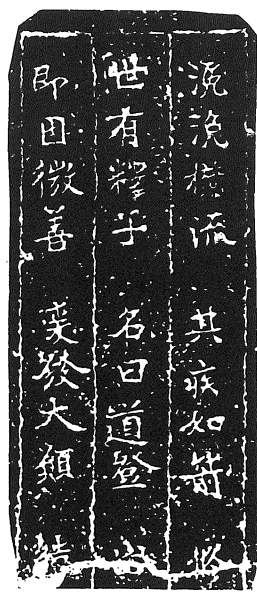 浼浼横流 其疾如箭
世有釋子 名曰道登
即因微善 爰發大願 結